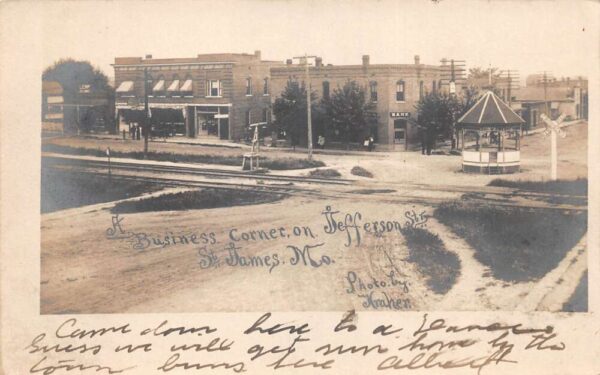 BANK
A
Business Corner, on Jefferson St.
St. James. Mo.
Photo. by.
Came down here to a Dance
Guess we will get run home by the
town bums here Albert